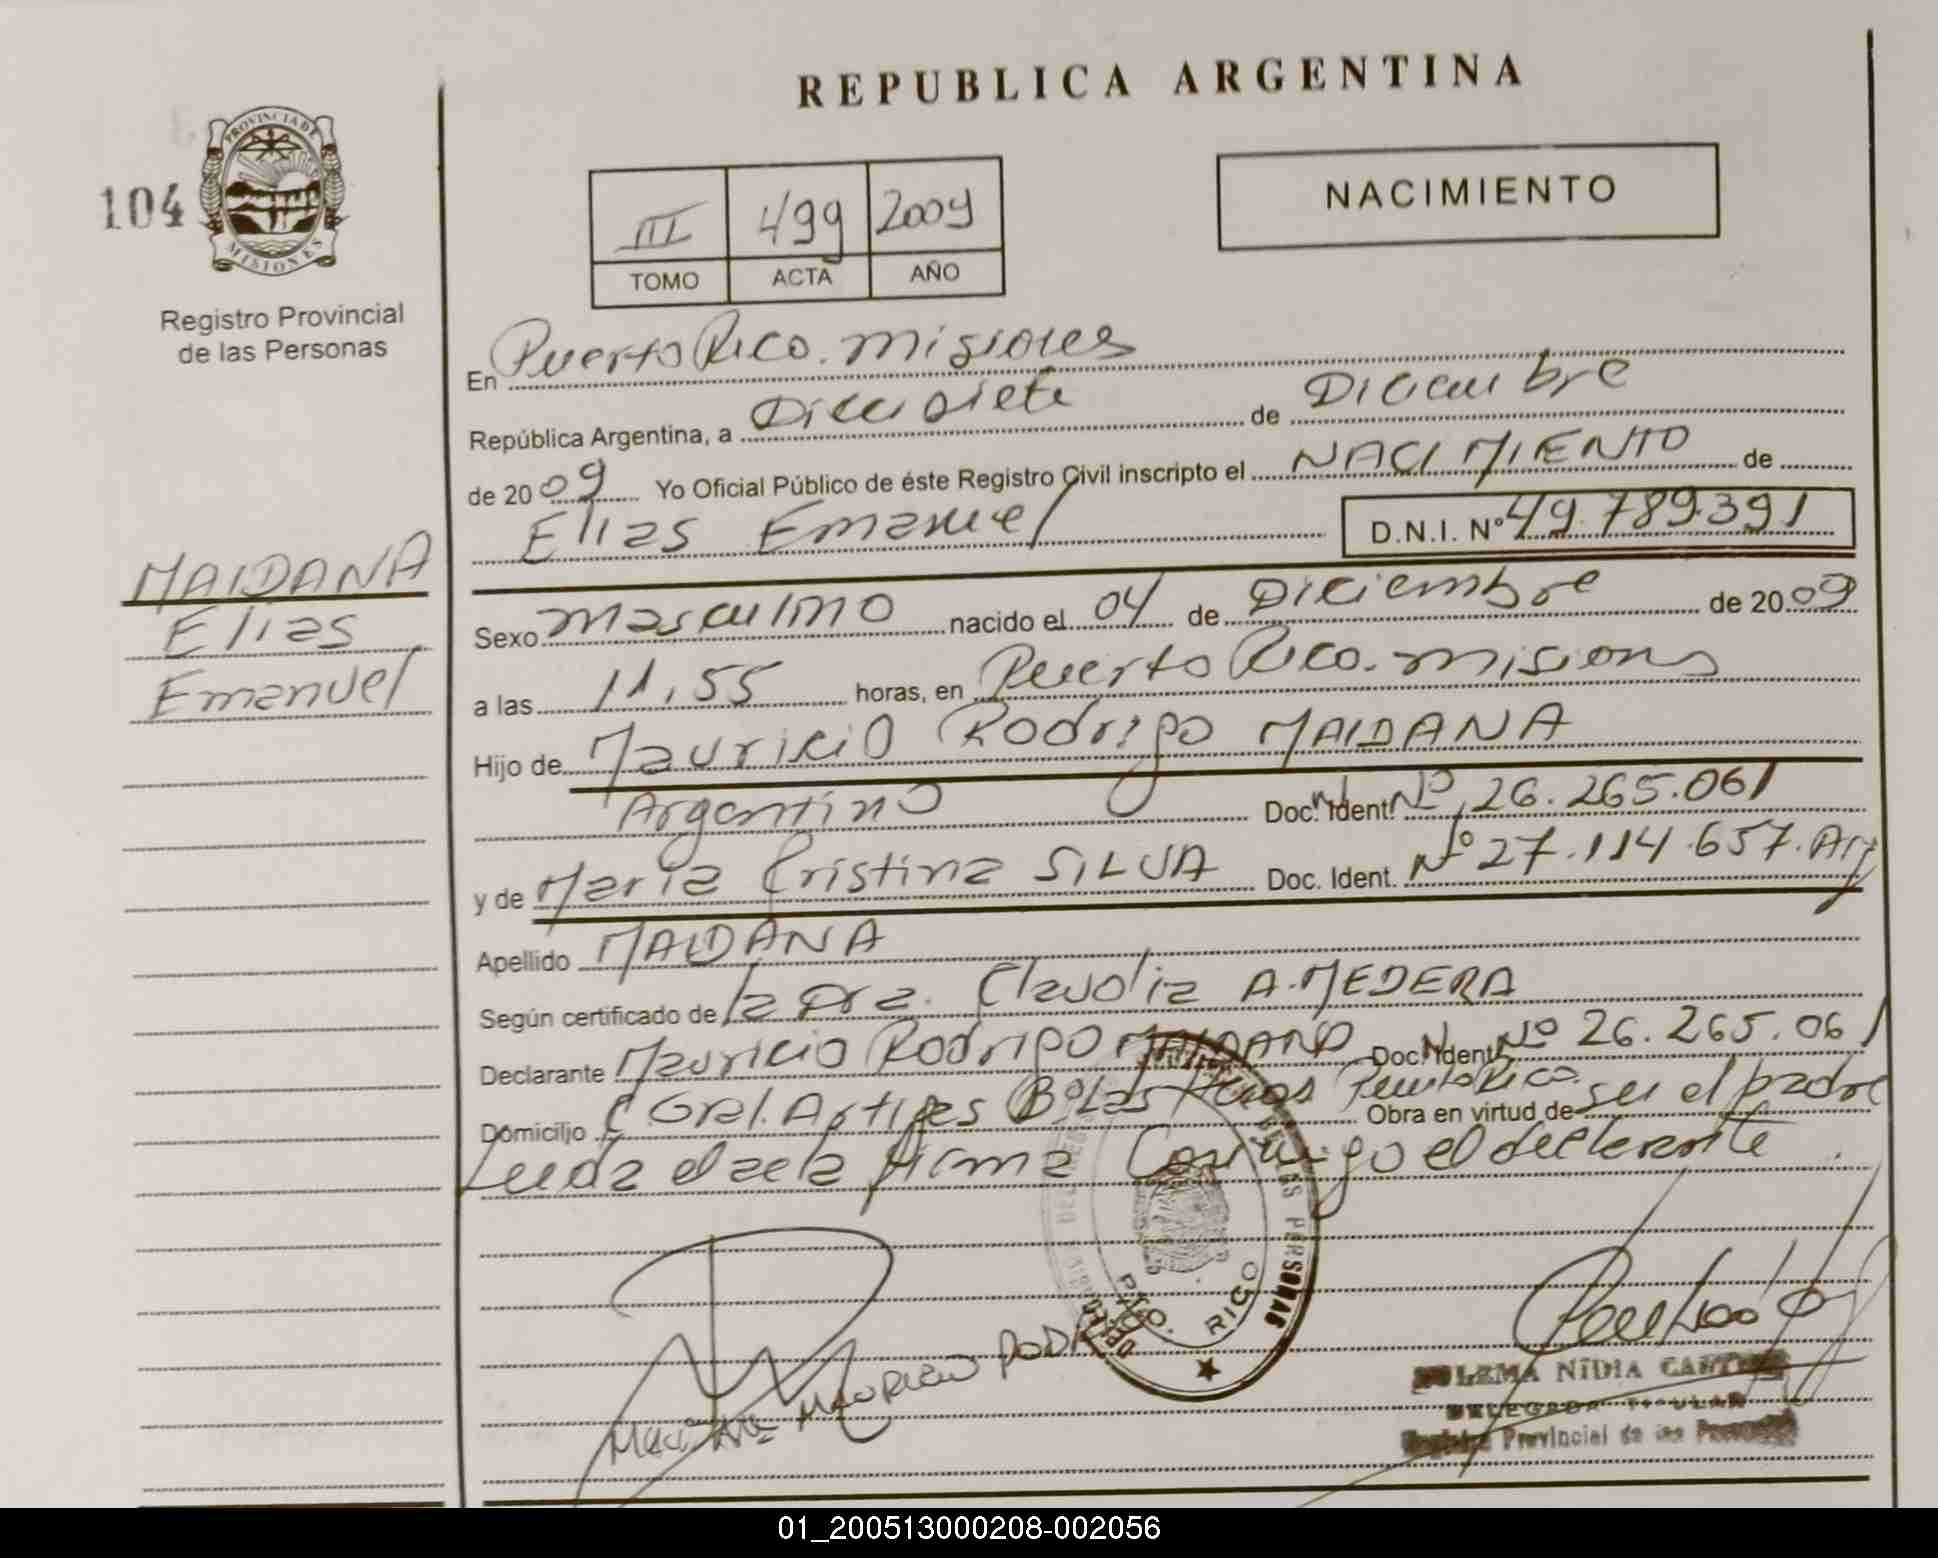 REPUBLICA ARGENTINA
PROVINCIA DE
MISIONES
104
Registro Provincial
de las Personas
NACIMIENTO
III 499 2009
TOMO ACTA AÑO
En Puerto Rico. Misiones
República Argentina, a Diecisiete de Diciembre
de 2009 Yo Oficial Público de éste Registro Civil inscripto el NACIMIENTO de
Elias Emanuel D.N.I. Nº 49.789.391
MAIDANA
Elias
Emanuel
Sexo masculino nacido el 04 de Diciembre de 2009
a las 11,55 horas, en Puerto Rico. Misiones
Hijo de Mauricio Rodrigo MAIDANA
Argentino Doc. Ident. Nº 26.265.061
y de Maria Cristina SILVA Doc. Ident. Nº 27.114.657. Arg
Apellido MAIDANA
Según certificado de la Dra. Claudia A. MEDERA
Declarante Mauricio Rodrigo MAIDANA Doc. Ident. Nº 26.265.061
Domicilio C Gral. Artigas Bº Las Puerto Rico. Obra en virtud de ser el padre
Leida el acta firma Conmigo el declarante
DE LAS PERSONAS
DPTO.
RICO
MAURICIO
NIDIA
DELEGADA TITULAR
Provincial de las
01_200513000208-002056